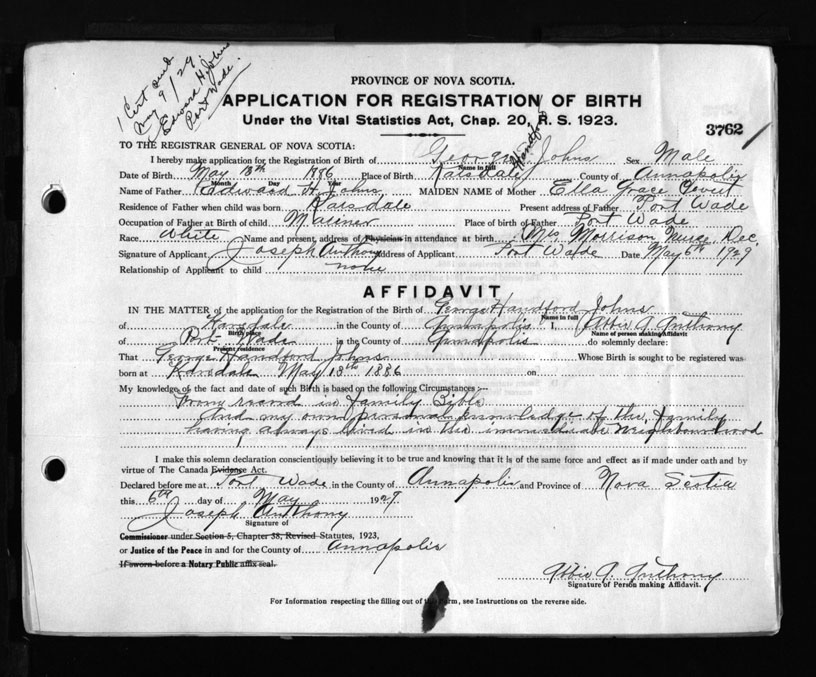 1 Cert and
May 9/29
Edward H. Johns
Port Wade.
PROVINCE OF NOVA SCOTIA.
APPLICATION FOR REGISTRATION OF BIRTH
Under the Vital Statistics Act, Chap. 20, R. S. 1923.
3762
TO THE REGISTRAR GENERAL OF NOVA SCOTIA:
I hereby make application for the Registration of Birth of George Handford Johns Sex Male
Name in full
Date of Birth May 13th 1886 Place of Birth Karsdale County of Annapolis
Month Day Year
Name of Father Edward H. Johns MAIDEN NAME of Mother Ella Grace
Residence of Father when child was born Karsdale Present address of Father Port Wade
Occupation of Father at Birth of child Mariner Place of birth of Father Port Wade
Race White Name and present address of Physician in attendance at birth Mrs Morrison Nurse Dec.
Signature of Applicant Joseph Anthony Address of Applicant Port Wade Date May 6th 1929
Relationship of Applicant to child none
AFFIDAVIT
IN THE MATTER of the application for the Registration of the Birth of George Handford Johns
Name in full
of Karsdale in the County of Annapolis I, Abbie A. Anthony
Birth place Name of person making Affidavit
of Port Wade in the County of Annapolis do solemnly declare:
Present residence
That George Handford Johns Whose Birth is sought to be registered was
born at Karsdale May 13th 1886 on
My knowledge of the fact and date of such Birth is based on the following Circumstances:—
From record in family Bible
and my own personal knowledge of the family
having always lived in the immediate neighbourhood
I make this solemn declaration conscientiously believing it to be true and knowing that it is of the same force and effect as if made under oath and by
virtue of The Canada Evidence Act.
Declared before me at Port Wade in the County of Annapolis and Province of Nova Scotia
this 6th day of May 1929
Joseph Anthony
Signature of
Commissioner under Section 5, Chapter 38, Revised Statutes, 1923,
or Justice of the Peace in and for the County of Annapolis
If sworn before a Notary Public affix seal.
Abbie A. Anthony
Signature of Person making Affidavit.
For Information respecting the filling out of this Form, see Instructions on the reverse side.